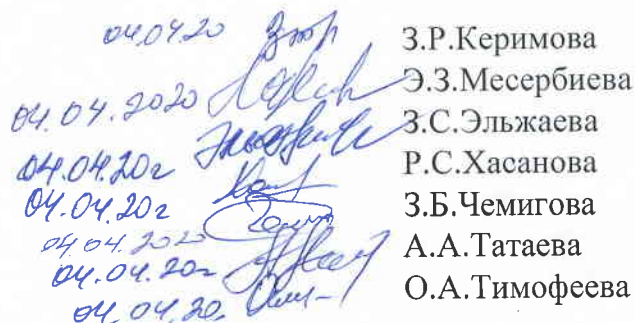 04.04.20 З.Р.Керимова
04.04.2020 Э.З.Месербиева
04.04.20г З.С.Эльжаева
04.04.20г Р.С.Хасанова
04.04.2020 З.Б.Чемигова
04.04.20г А.А.Татаева
04.04.20г О.А.Тимофеева